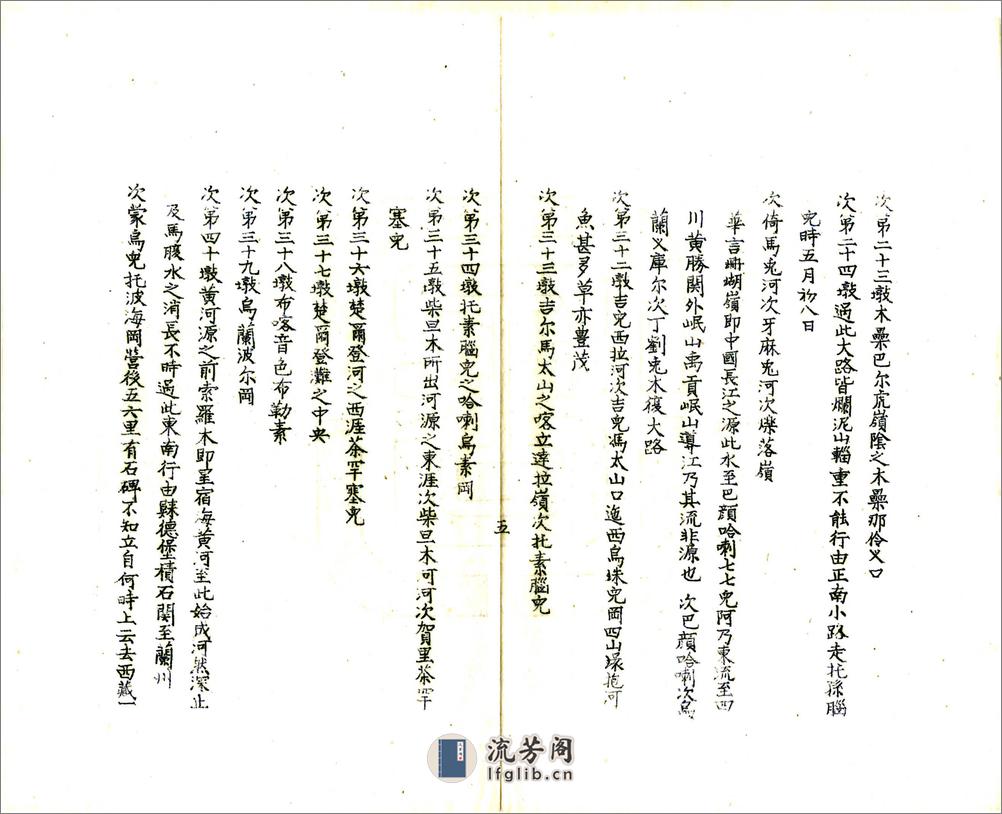 次第二十三墩木壘巴尔虎嶺陰之木壘那伶义口
次第二十四墩過此大路皆爛泥山輜重不能行由正南小路走托孫腦
兒時五月初八日
次倚馬兔河次牙麻兔河次爍落嶺
華言珊瑚嶺即中國長江之源此水至巴顔哈喇七七兒阿乃東流至四
川黄勝関外岷山禹貢岷山導江乃其流非源也 次巴顔哈喇次烏
蘭义庫尔次丁劉兔木復大路
次第三十二墩吉兒西拉河次吉兒馮太山口迤西烏珠兒岡四山環抱河
魚甚多草亦豊茂
次第三十三墩吉尔馬太山之喀立達拉嶺次托素腦兒
五
次第三十四墩托素腦兒之哈喇烏素岡
次第三十五墩柴旦木所出河源之東涯次柴旦木河河次賀里茶罕
塞兒
次第三十六墩楚爾登河之西涯茶罕塞兒
次第三十七墩楚爾登灘之中央
次第三十八墩布喀音色布勒素
次第三十九墩烏蘭波尔岡
次第四十墩黄河源之前索羅木即星宿海黄河至此始成河然深止
及馬腹水之消長不時過此東南行由歸德堡積石関至蘭州
次蒙烏兒托波海岡營後五六里有石碑不知立自何時上云去西藏一
流芳阁
lfglib.cn